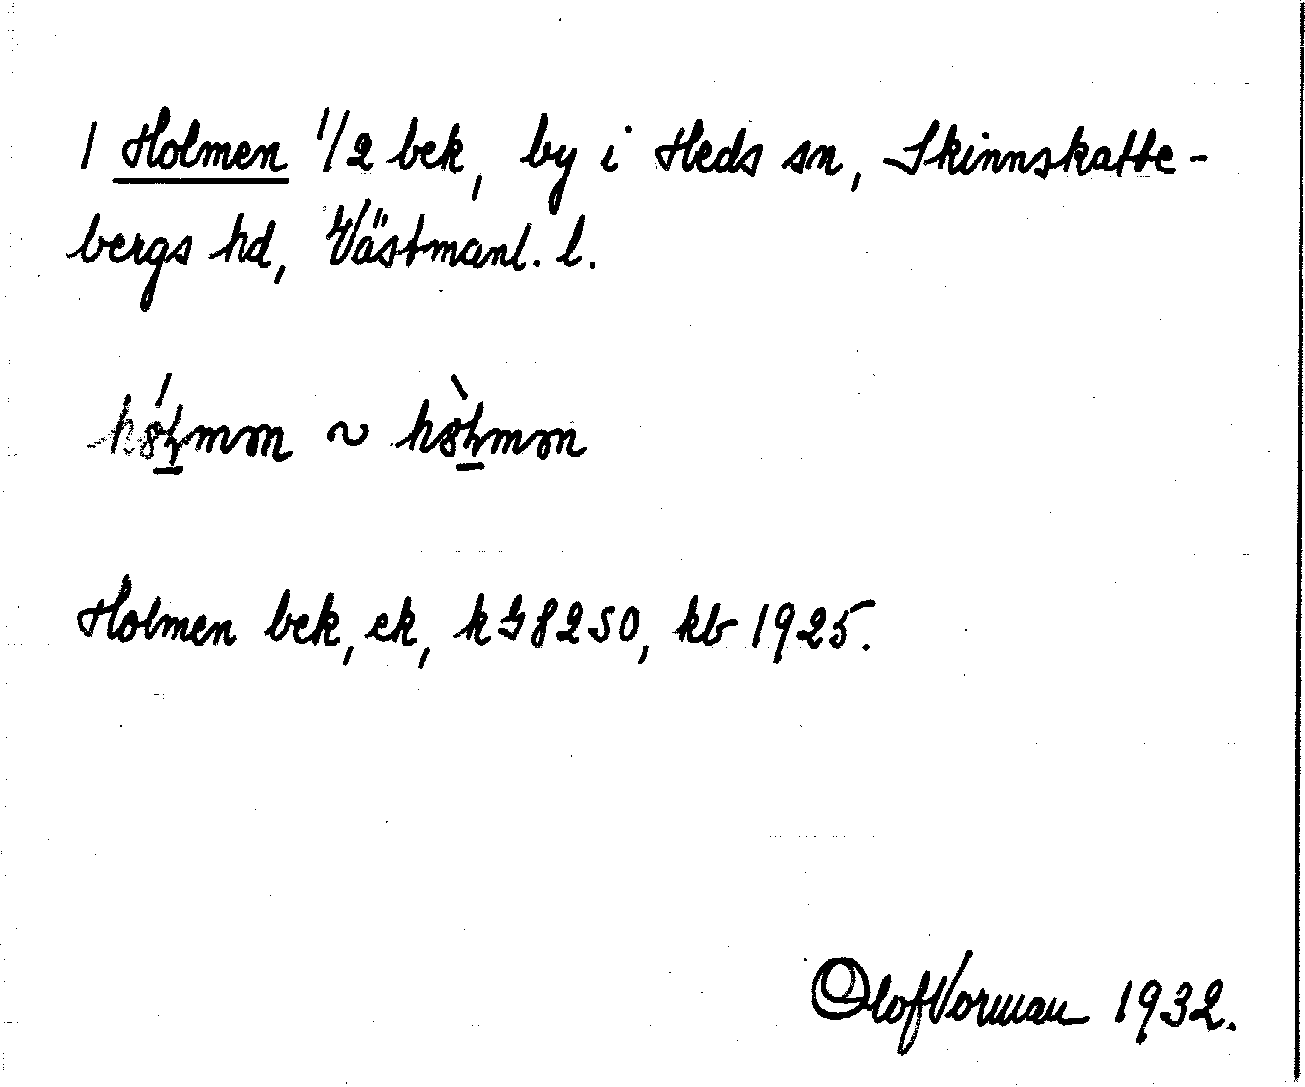 1 Holmen 1/2 bek, by i Heds sn, Skinnskatte-
bergs hd, Västmanl. l.
~
Holmen bek, ek, k G 8250, kb 1925.
Olof Vorman 1932.